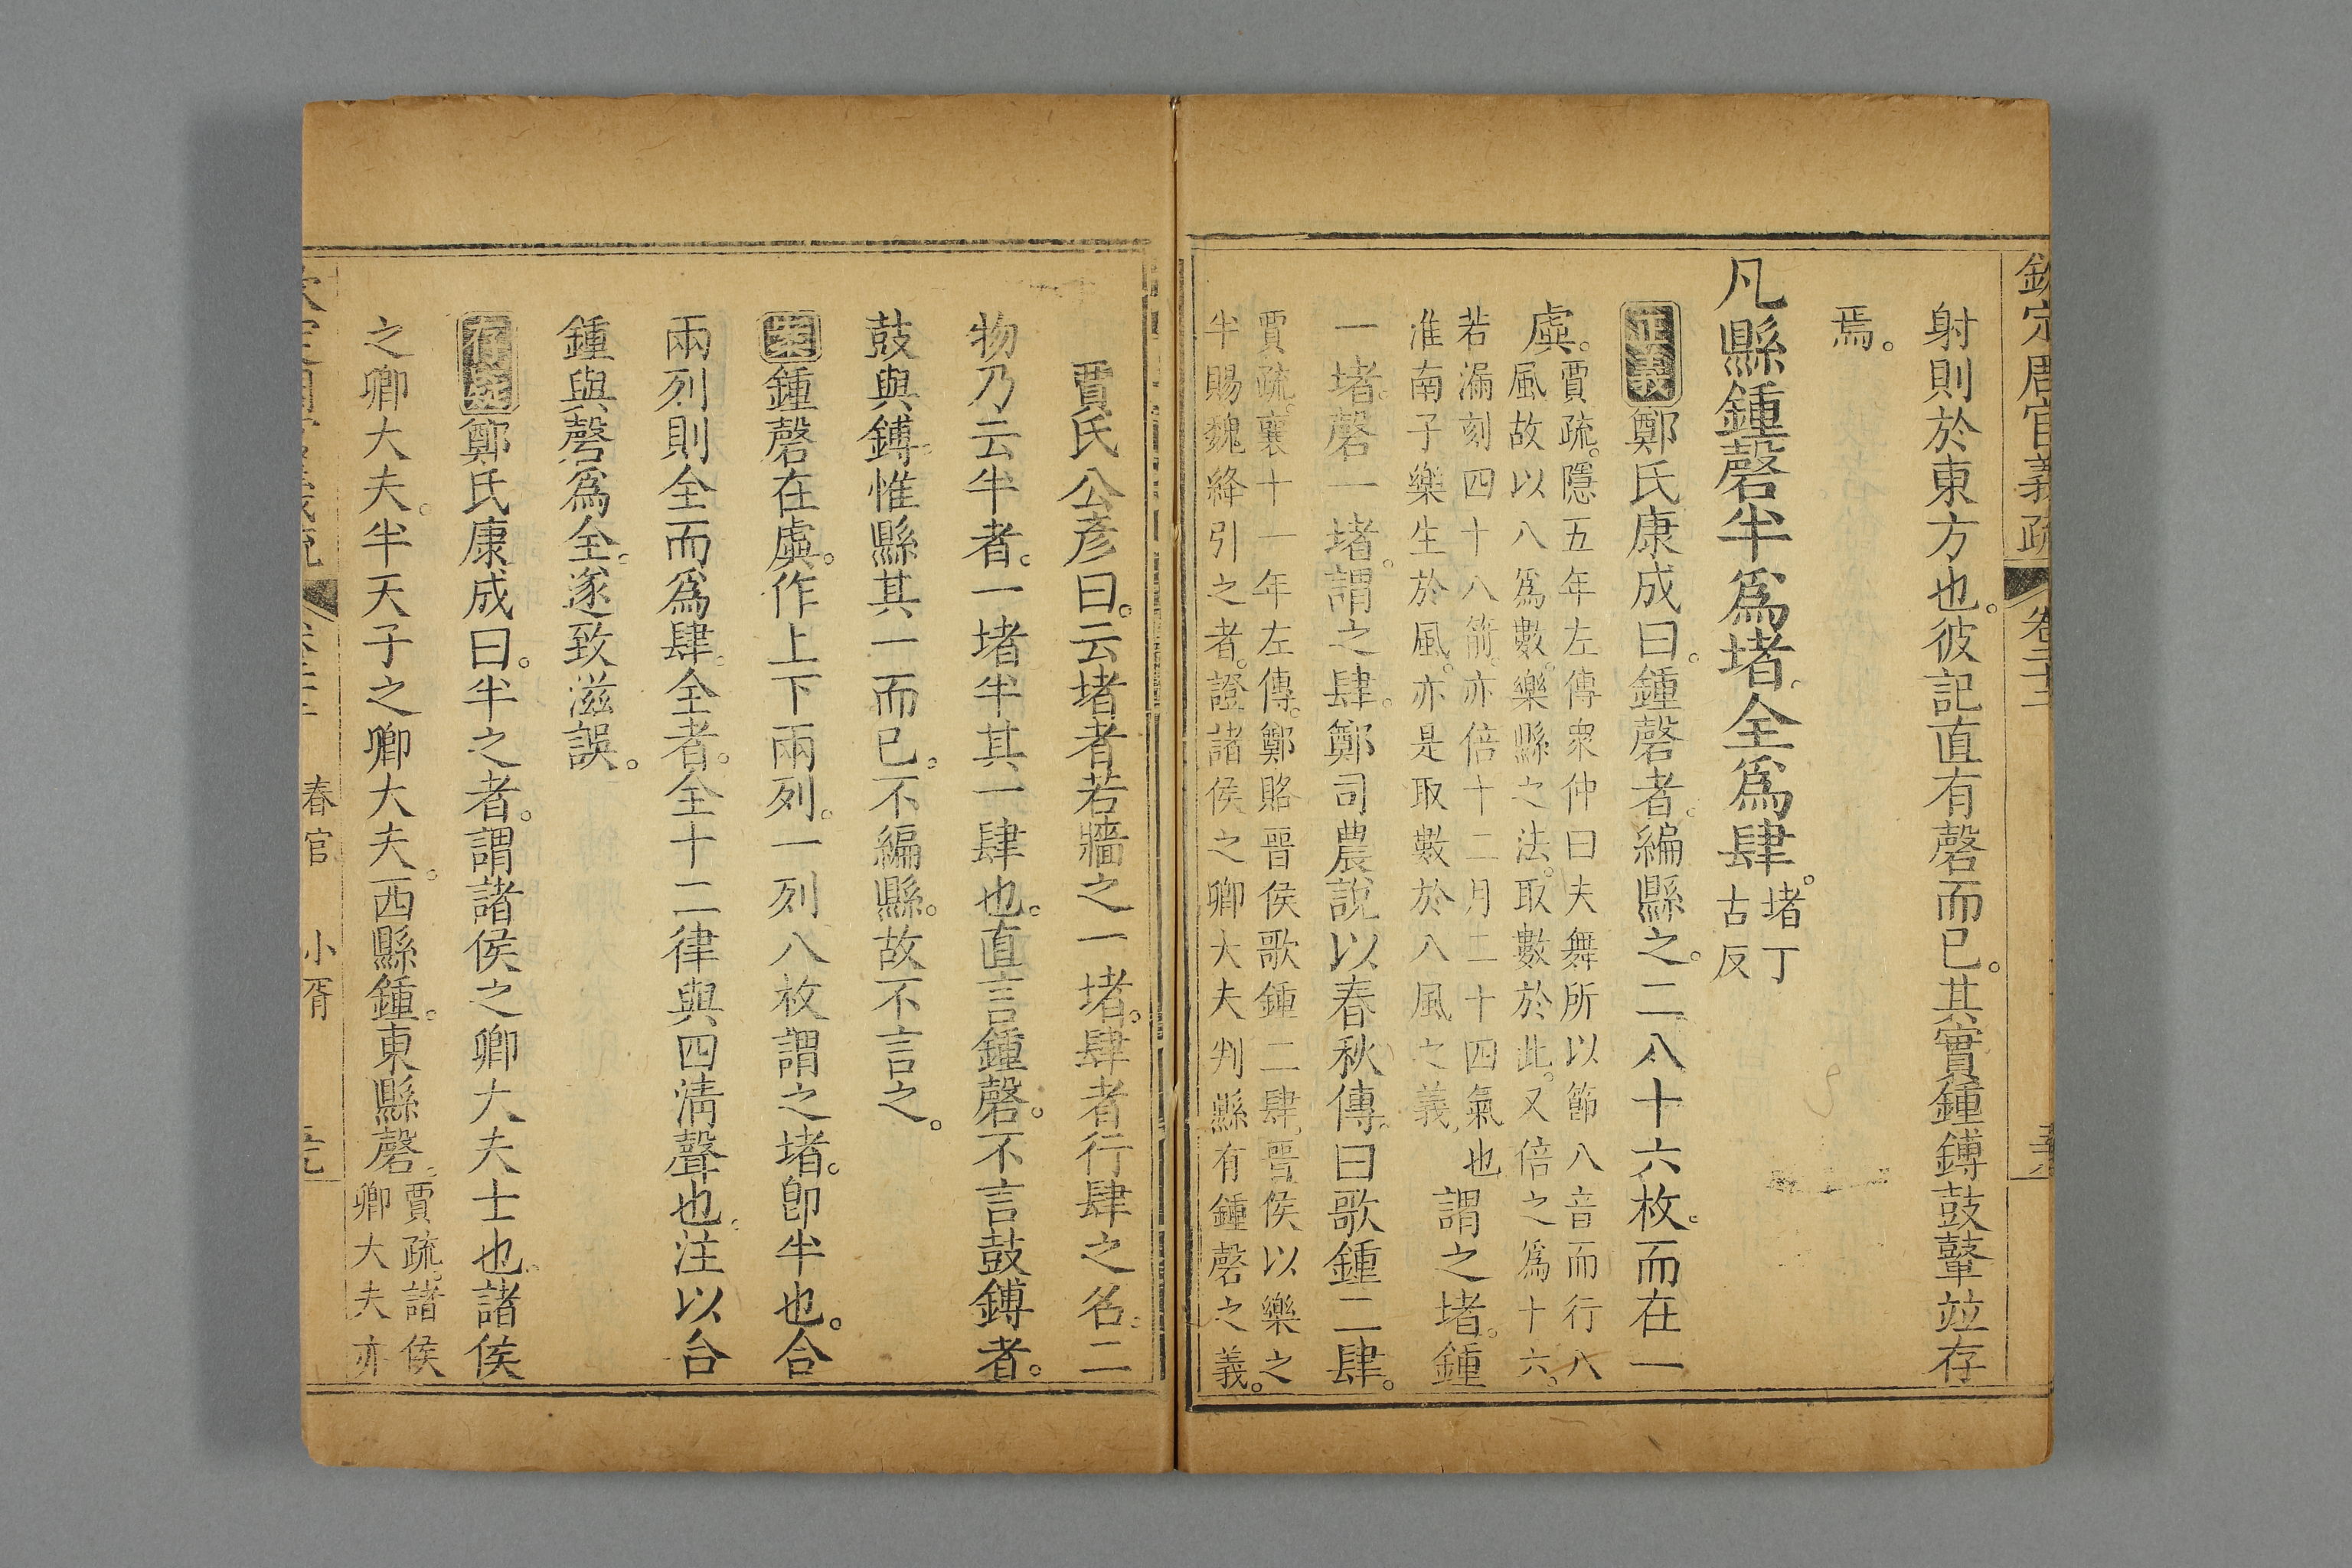 欽定周官義疏 卷二十三
射則於東方也。彼記直有磬而已。其實鍾鎛鼓鼙竝存
焉。
凡縣鍾磬半爲堵。全爲肆。堵丁
古反
正義鄭氏康成曰。鍾磬者。編縣之。二八十六枚。而在一
虡。賈疏。隱五年左傳衆仲曰夫舞所以節八音而行八
風故以八爲數。樂縣之法。取數於此。又倍之爲十六。
若漏刻四十八箭。亦倍十二月二十四氣也
淮南子樂生於風。亦是取數於八風之義。謂之堵。鍾
一堵。磬一堵。謂之肆。鄭司農說以春秋傳。曰歌鍾二肆。
賈疏。襄十一年左傳。鄭賂晉侯歌鍾二肆。晉侯以樂之
半賜魏絳引之者。證諸侯之卿大夫判縣有鍾磬之義。
賈氏公彥曰。云堵者若牆之一堵。肆者行肆之名。二
物乃云半者。一堵半其一肆也。直言鍾磬。不言鼓鎛者。
鼓與鎛。惟縣其一而已。不編縣。故不言之。
案鍾磬在虡。作上下兩列。一列八枚謂之堵。卽半也。合
兩列則全而爲肆。全者。全十二律與四淸聲也。注以合
鍾與磬爲全。遂致滋誤。
存疑鄭氏康成曰。半之者。謂諸侯之卿大夫士也。諸侯
之卿大夫。半天子之卿大夫。西縣鍾。東縣磬。賈疏。諸侯
卿大夫亦
春官 小胥